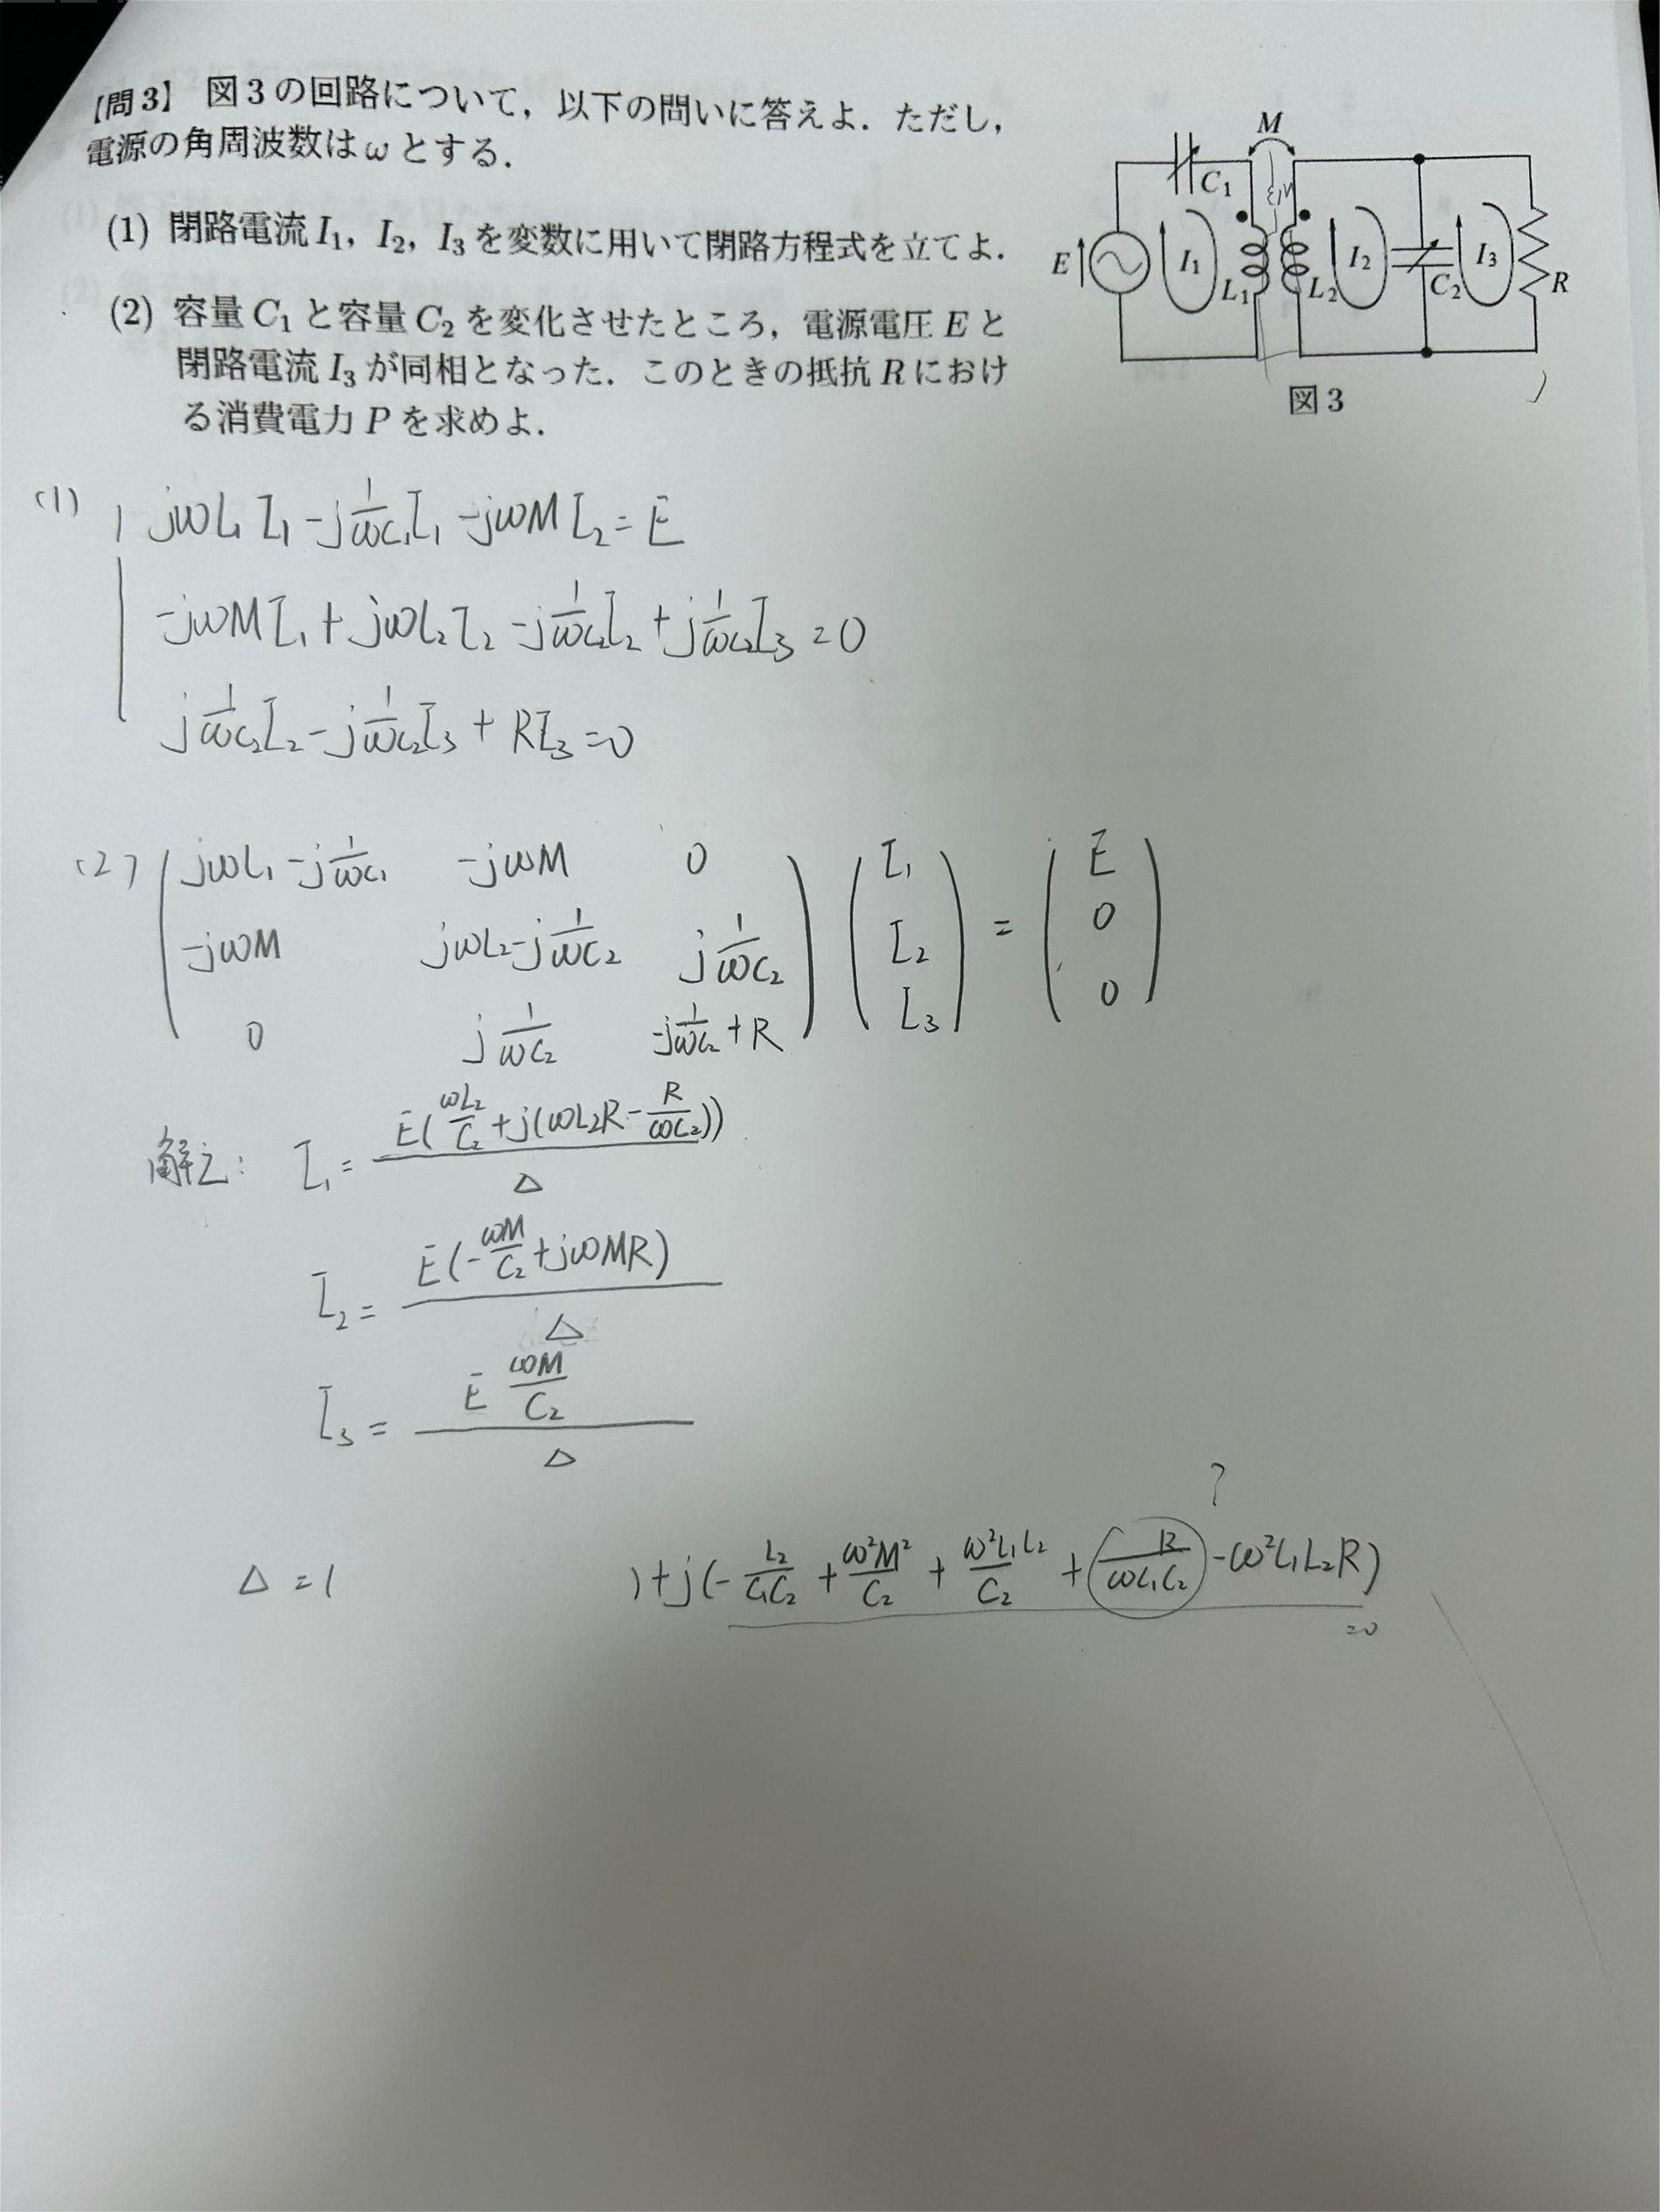 【問3】 図3の回路について，以下の問いに答えよ．ただし，
電源の角周波数はωとする．
(1) 閉路電流 I₁，I₂，I₃ を変数に用いて閉路方程式を立てよ．
(2) 容量 C₁ と容量 C₂ を変化させたところ，電源電圧 E と
閉路電流 I₃ が同相となった．このときの抵抗 R におけ
る消費電力 P を求めよ．
M
C₁
E
I₁
L₁
L₂
I₂
C₂
I₃
R
図3
(1) jωL₁I₁ - j1/ωC₁ I₁ - jωMI₂ = E
-jωMI₁ + jωL₂I₂ - j1/ωC₂ I₂ + j1/ωC₂ I₃ = 0
j1/ωC₂ I₂ - j1/ωC₂ I₃ + RI₃ = 0
(2) ( jωL₁ - j1/ωC₁ -jωM 0 ) ( I₁ ) = ( E )
-jωM jωL₂ - j1/ωC₂ j1/ωC₂ I₂ 0
0 j1/ωC₂ -j1/ωC₂ + R I₃ 0
I₁ = E(ωL₂/C₂ + j(ωL₂R - R/ωC₂)) / Δ
I₂ = E(-ωM/C₂ + jωMR) / Δ
I₃ = E ωM/C₂ / Δ
?
Δ = ( ) + j(-L₂/C₁C₂ + ω²M²/C₂ + ω²L₁L₂/C₂ + R/ωC₁C₂ - ω²L₁L₂R)
=0